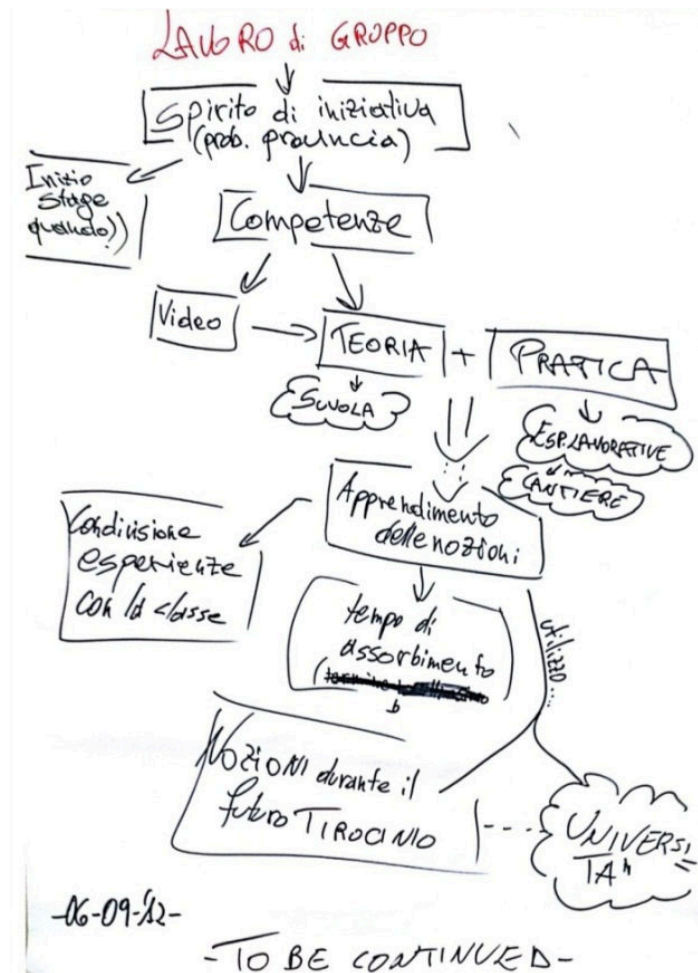 LAVORO di GROPPO
Spirito di iniziativa
(prob. provincia)
Inizio
stage
Competenze
Video
TEORIA + PRATICA
SCUOLA
ESP. LAVORATIVE
CANTIERE
Apprendimento
delle nozioni
Condivisione
esperienze
con la classe
tempo di
assorbimento
utilizzo...
NOZIONI durante il
futuro TIROCINIO
UNIVERSI
TA'
-06-09-'12-
-TO BE CONTINUED-